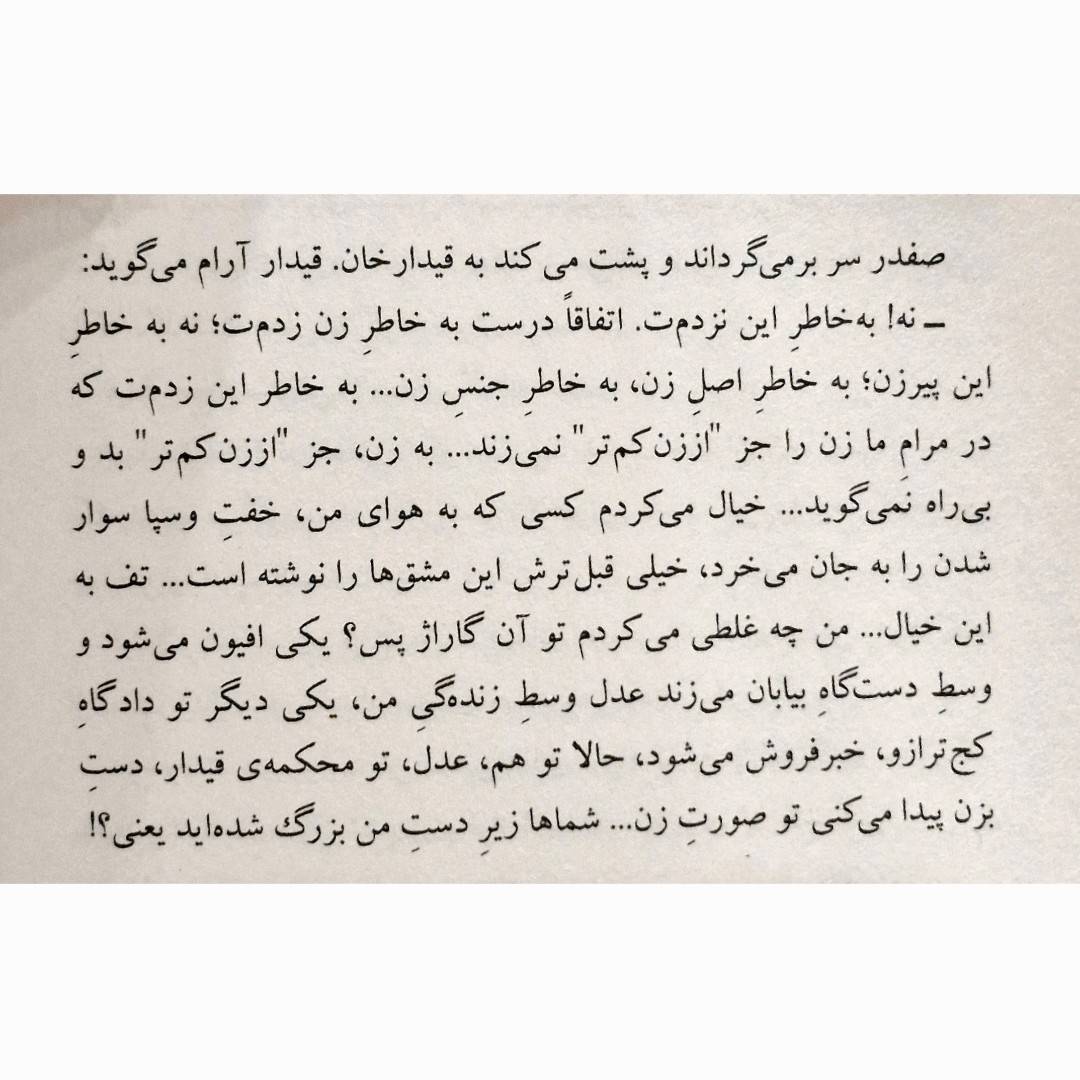 صفدر سر برمی‌گرداند و پشت می‌کند به قیدارخان. قیدار آرام می‌گوید:
ـ نه! به‌خاطرِ این نزدم‌ت. اتفاقاً درست به خاطرِ زن زدم‌ت؛ نه به خاطرِ
این پیرزن؛ به خاطرِ اصلِ زن، به خاطرِ جنسِ زن... به خاطر این زدم‌ت که
در مرامِ ما زن را جز "اززن‌کم‌تر" نمی‌زند... به زن، جز "اززن‌کم‌تر" بد و
بی‌راه نمی‌گوید... خیال می‌کردم کسی که به هوای من، خفتِ وسپا سوار
شدن را به جان می‌خرد، خیلی قبل‌ترش این مشق‌ها را نوشته است... تف به
این خیال... من چه غلطی می‌کردم تو آن گاراژ پس؟ یکی افیون می‌شود و
وسطِ دست‌گاهِ بیابان می‌زند عدل وسطِ زنده‌گیِ من، یکی دیگر تو دادگاهِ
کج‌ترازو، خبرفروش می‌شود، حالا تو هم، عدل، تو محکمه‌ی قیدار، دستِ
بزن پیدا می‌کنی تو صورتِ زن... شماها زیرِ دستِ من بزرگ شده‌اید یعنی؟!